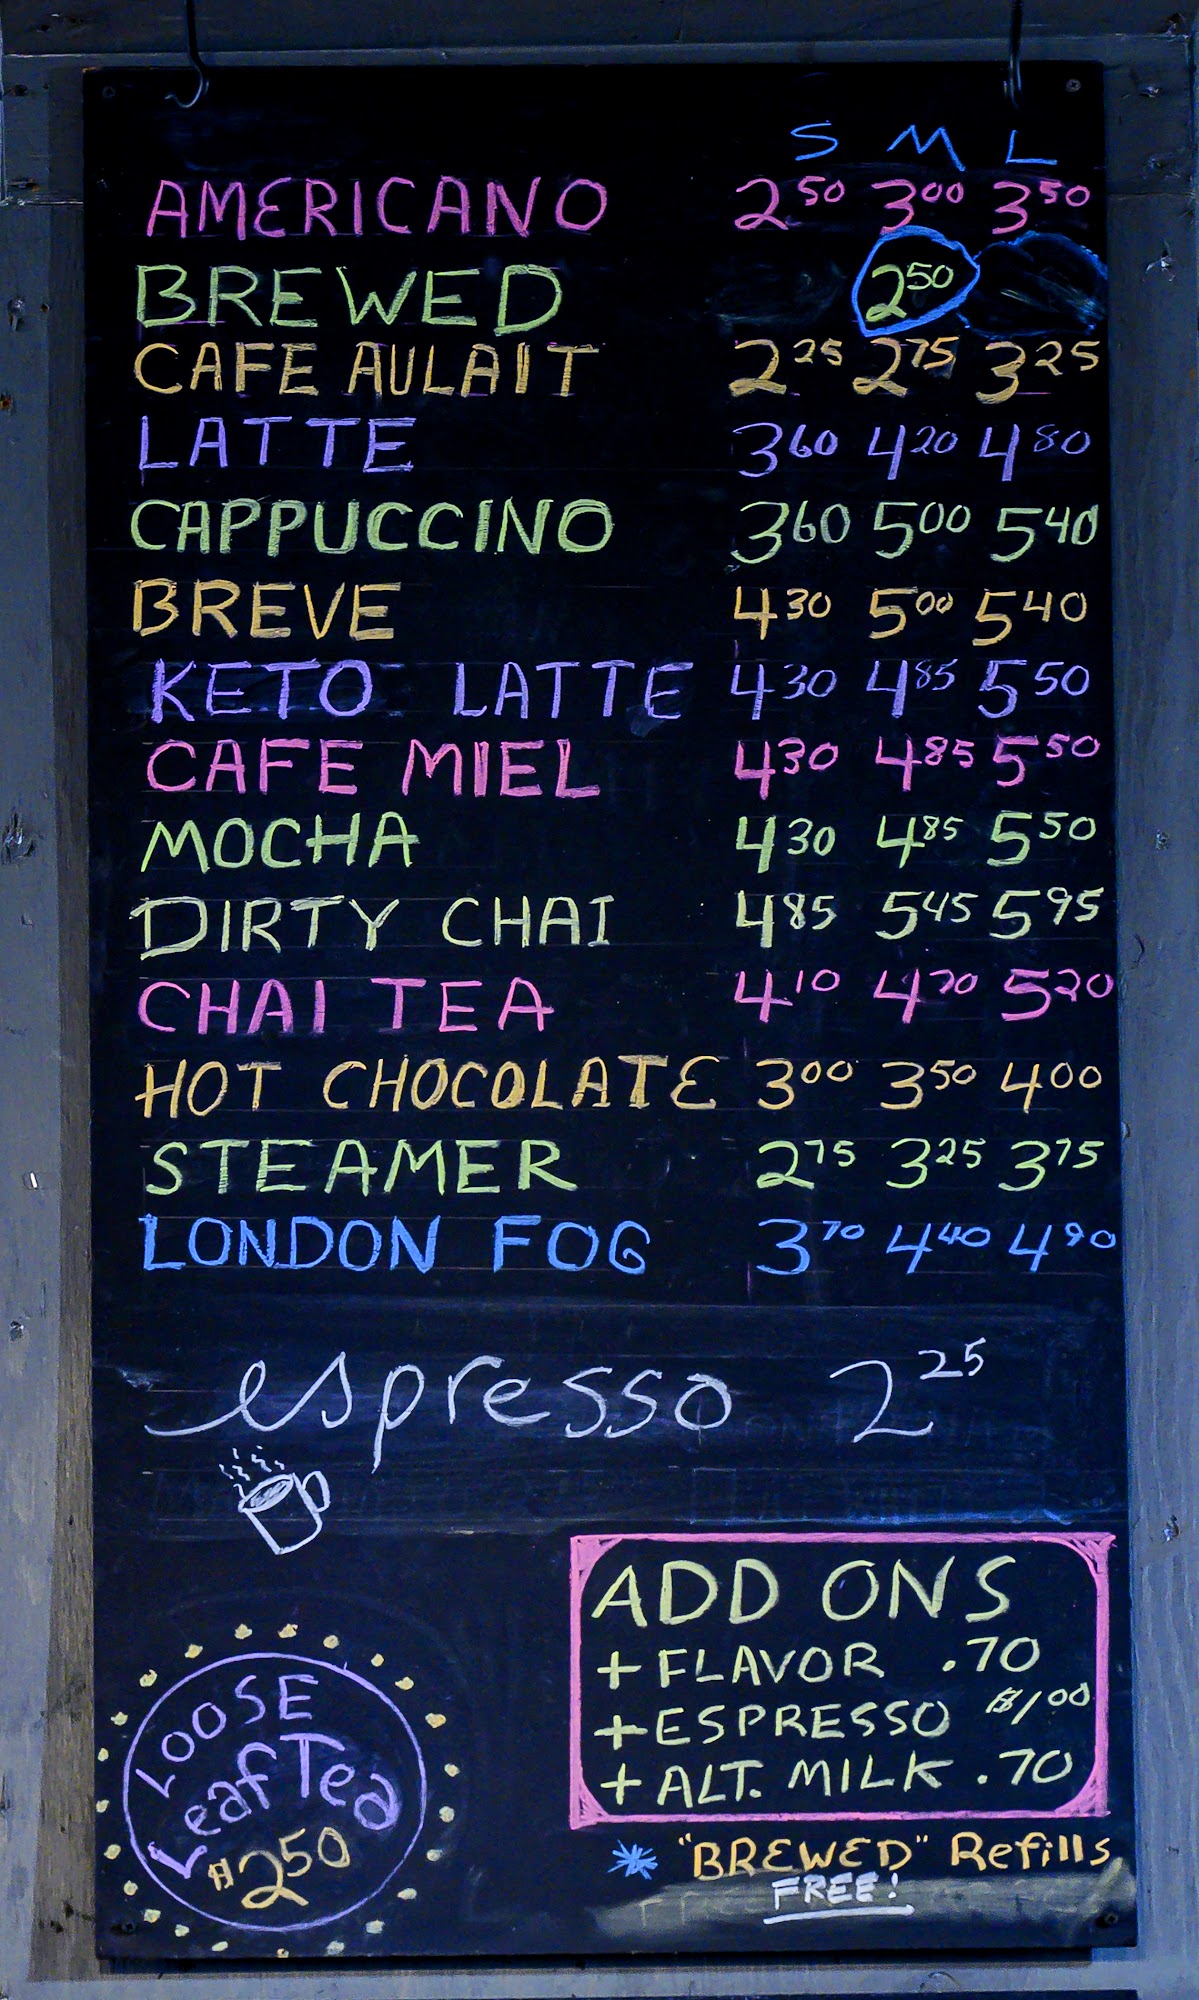 S M L
AMERICANO 2 50 3 00 3 50
BREWED 2 50
CAFE AULAIT 2 25 2 75 3 25
LATTE 3 60 4 20 4 80
CAPPUCCINO 3 60 5 00 5 40
BREVE 4 30 5 00 5 40
KETO LATTE 4 30 4 85 5 50
CAFE MIEL 4 30 4 85 5 50
MOCHA 4 30 4 85 5 50
DIRTY CHAI 4 85 5 45 5 95
CHAI TEA 4 10 4 70 5 20
HOT CHOCOLATE 3 00 3 50 4 00
STEAMER 2 75 3 25 3 75
LONDON FOG 3 70 4 40 4 90
espresso 2 25
ADD ONS
+ FLAVOR .70
+ ESPRESSO $1 00
+ ALT. MILK .70
* "BREWED" Refills
FREE!
LOOSE
Leaf Tea
$2 50